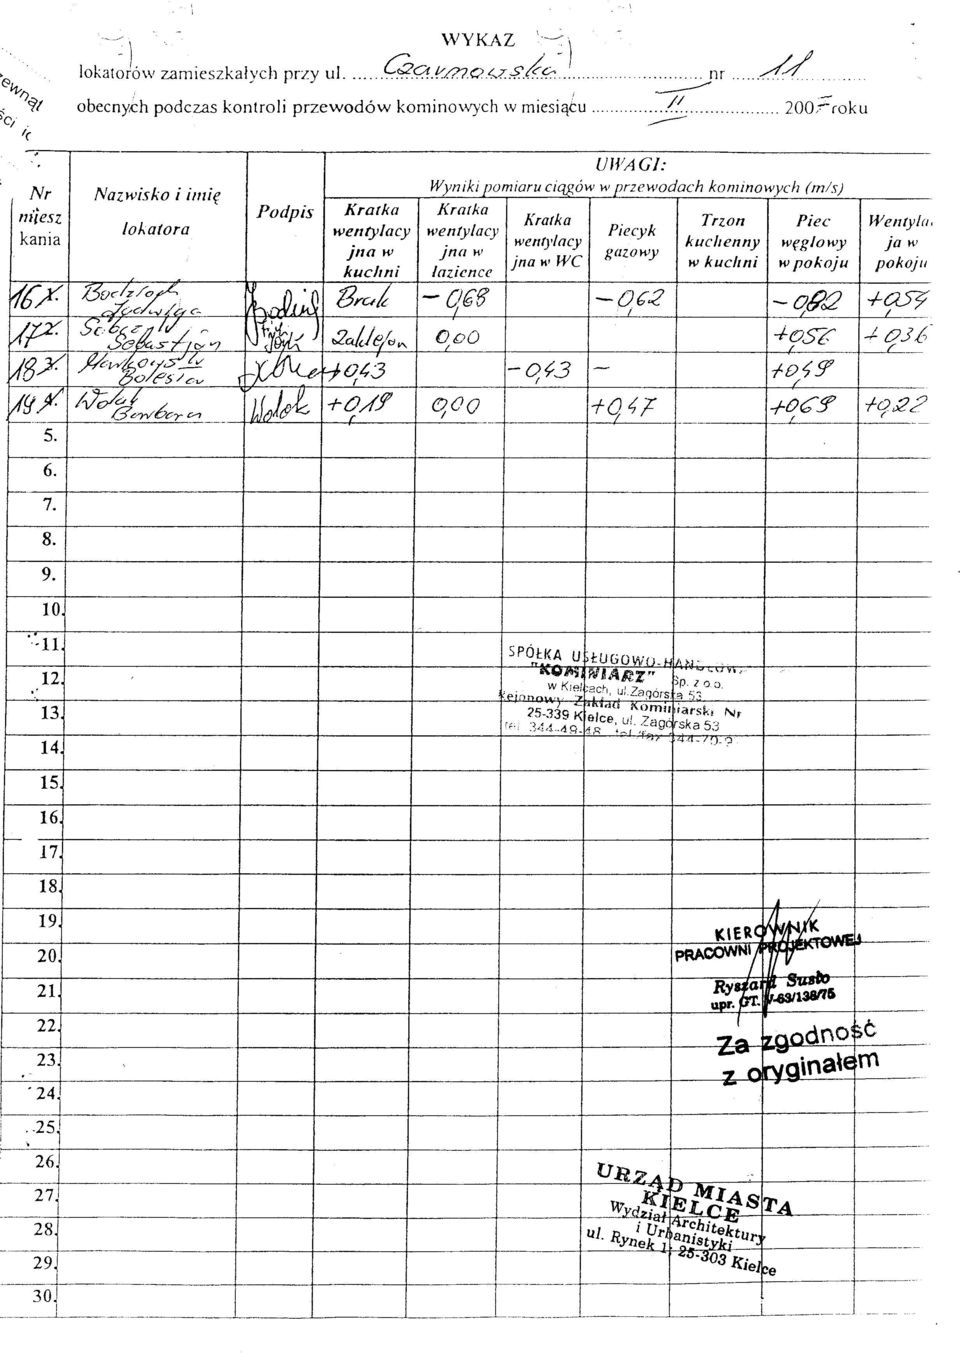 WYKAZ
lokatorów zamieszkałych przy ul. Czarnowska nr 11
obecnych podczas kontroli przewodów kominowych w miesiącu 11 200 roku
UWAGI:
Wyniki pomiaru ciągów w przewodach kominowych (m/s)
Nr miesz kania | Nazwisko i imię lokatora | Podpis | Kratka wentylacy jna w kuchni | Kratka wentylacy jna w łazience | Kratka wentylacy jna w WC | Piecyk gazowy | Trzon kuchenny w kuchni | Piec węglowy w pokoju | Wentyla ja w pokoju
16 Jadwiga Brak - 0,68 - 0,62 - 0,82 +0,54
17 Sebastjan Zaklejon 0,00 +0,56 + 0,36
18 +0,43 - 0,43 - +0,49
19 Wolak Barbara Wolak +0,19 0,00 +0,47 +0,69 +0,22
5.
6.
7.
8.
9.
10.
11.
SPÓŁKA USŁUGOWO-HANDLOWA
12. "KOMINIARZ" Sp. z o.o.
w Kielcach, ul. Zagórska 53
Rejonowy Zakład Kominiarski Nr
13. 25-339 Kielce, ul. Zagórska 53
tel. 344-49-48
14.
15.
16.
17.
18.
19. KIEROWNIK
20. PRACOWNI PROJEKTOWEJ
21. Ryszard Susło
upr. GT. V-63/138/75
22. Za zgodność
23. z oryginałem
24.
25.
26. URZĄD MIASTA
27. KIELCE
Wydział Architektury
28. i Urbanistyki
ul. Rynek 1; 25-303 Kielce
29.
30.